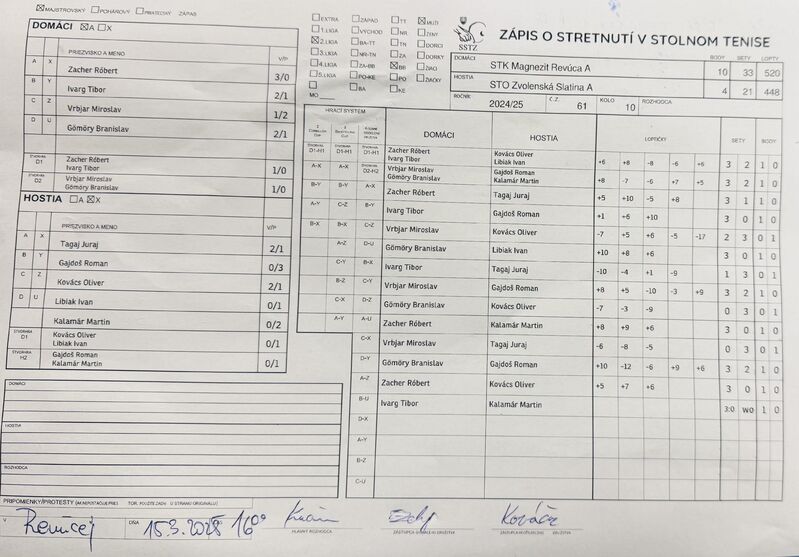 MAJSTROVSKÝ POHÁROVÝ PRIATEĽSKÝ ZÁPAS
DOMÁCI A X
PRIEZVISKO A MENO V/P
A X Zacher Róbert 3/0
B Y Ivarg Tibor 2/1
C Z Vrbjar Miroslav 1/2
D U Gömöry Branislav 2/1
ŠTVORHRA D1 Zacher Róbert
Ivarg Tibor 1/0
ŠTVORHRA D2 Vrbjar Miroslav
Gömöry Branislav 1/0
HOSTIA A X
PRIEZVISKO A MENO V/P
A X Tagaj Juraj 2/1
B Y Gajdoš Roman 0/3
C Z Kovács Oliver 2/1
D U Libiak Ivan 0/1
Kalamár Martin 0/2
ŠTVORHRA D1 Kovács Oliver
Libiak Ivan 0/1
ŠTVORHRA H2 Gajdoš Roman
Kalamár Martin 0/1
DOMÁCI
HOSTIA
ROZHODCA
EXTRA ZÁPAD TT MUŽI
1.LIGA VÝCHOD NR ŽENY
2.LIGA BA-TT TN DORCI
3.LIGA NR-TN ZA DORKY
4.LIGA ZA-BB BB ŽIACI
5.LIGA PO-KE PO ŽIAČKY
BA KE
MO
SSTZ
ZÁPIS O STRETNUTÍ V STOLNOM TENISE
DOMÁCI STK Magnezit Revúca A BODY 10 SETY 33 LOPTY 520
HOSTIA STO Zvolenská Slatina A 4 21 448
ROČNÍK 2024/25 Č.Z. 61 KOLO 10 ROZHODCA
HRACÍ SYSTÉM
DOMÁCI HOSTIA LOPTIČKY SETY BODY
ŠTVORHRA D1-H1 ŠTVORHRA D1-H1 ŠTVORHRA D1-H1 Zacher Róbert Kovács Oliver
Ivarg Tibor Libiak Ivan +6 +8 -8 -6 +6 3 2 1 0
A-X A-X ŠTVORHRA D2-H2 Vrbjar Miroslav Gajdoš Roman
Gömöry Branislav Kalamár Martin +8 -7 -6 +7 +5 3 2 1 0
B-Y B-Y A-X Zacher Róbert Tagaj Juraj +5 +10 -5 +8 3 1 1 0
A-Y C-Z B-Y Ivarg Tibor Gajdoš Roman +1 +6 +10 3 0 1 0
B-X B-X C-Z Vrbjar Miroslav Kovács Oliver -7 +5 +6 -5 -17 2 3 0 1
A-Z D-U Gömöry Branislav Libiak Ivan +10 +8 +6 3 0 1 0
C-Y B-X Ivarg Tibor Tagaj Juraj -10 -4 +1 -9 1 3 0 1
B-Z C-Y Vrbjar Miroslav Gajdoš Roman +8 +5 -10 -3 +9 3 2 1 0
C-X D-Z Gömöry Branislav Kovács Oliver -7 -3 -9 0 3 0 1
A-Y A-U Zacher Róbert Kalamár Martin +8 +9 +6 3 0 1 0
C-X Vrbjar Miroslav Tagaj Juraj -6 -8 -5 0 3 0 1
D-Y Gömöry Branislav Gajdoš Roman +10 -12 -6 +9 +6 3 2 1 0
A-Z Zacher Róbert Kovács Oliver +5 +7 +6 3 0 1 0
B-U Ivarg Tibor Kalamár Martin 3:0 WO 1 0
D-X
A-Y
B-Z
C-U
PRIPOMIENKY/PROTESTY
V DŇA 15.3.2025 16°°
HLAVNÝ ROZHODCA
Kovács